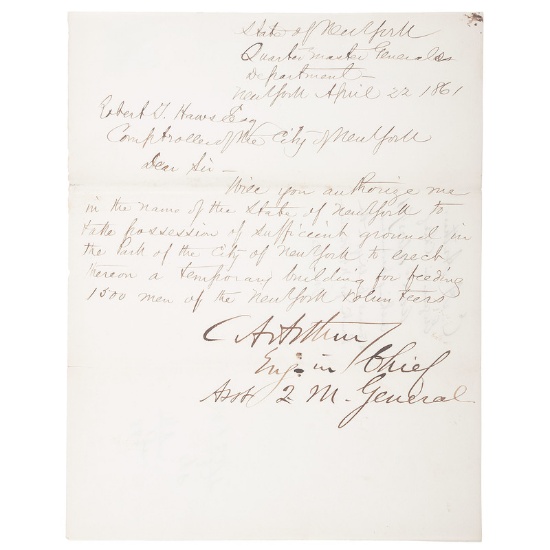 State of New York
Quarter master Generals
Department—
New York April 22 1861
Robert T. Haws Esq
Comptroller of the City of New York
Dear Sir—
Will you authorize me
in the name of the State of New York to
take possession of sufficient ground in
the Park of the City of New York to erect
thereon a temporary building for feeding
1500 men of the New York Volunteers
C A Arthur
Eng. in Chief
Asst Q M. General